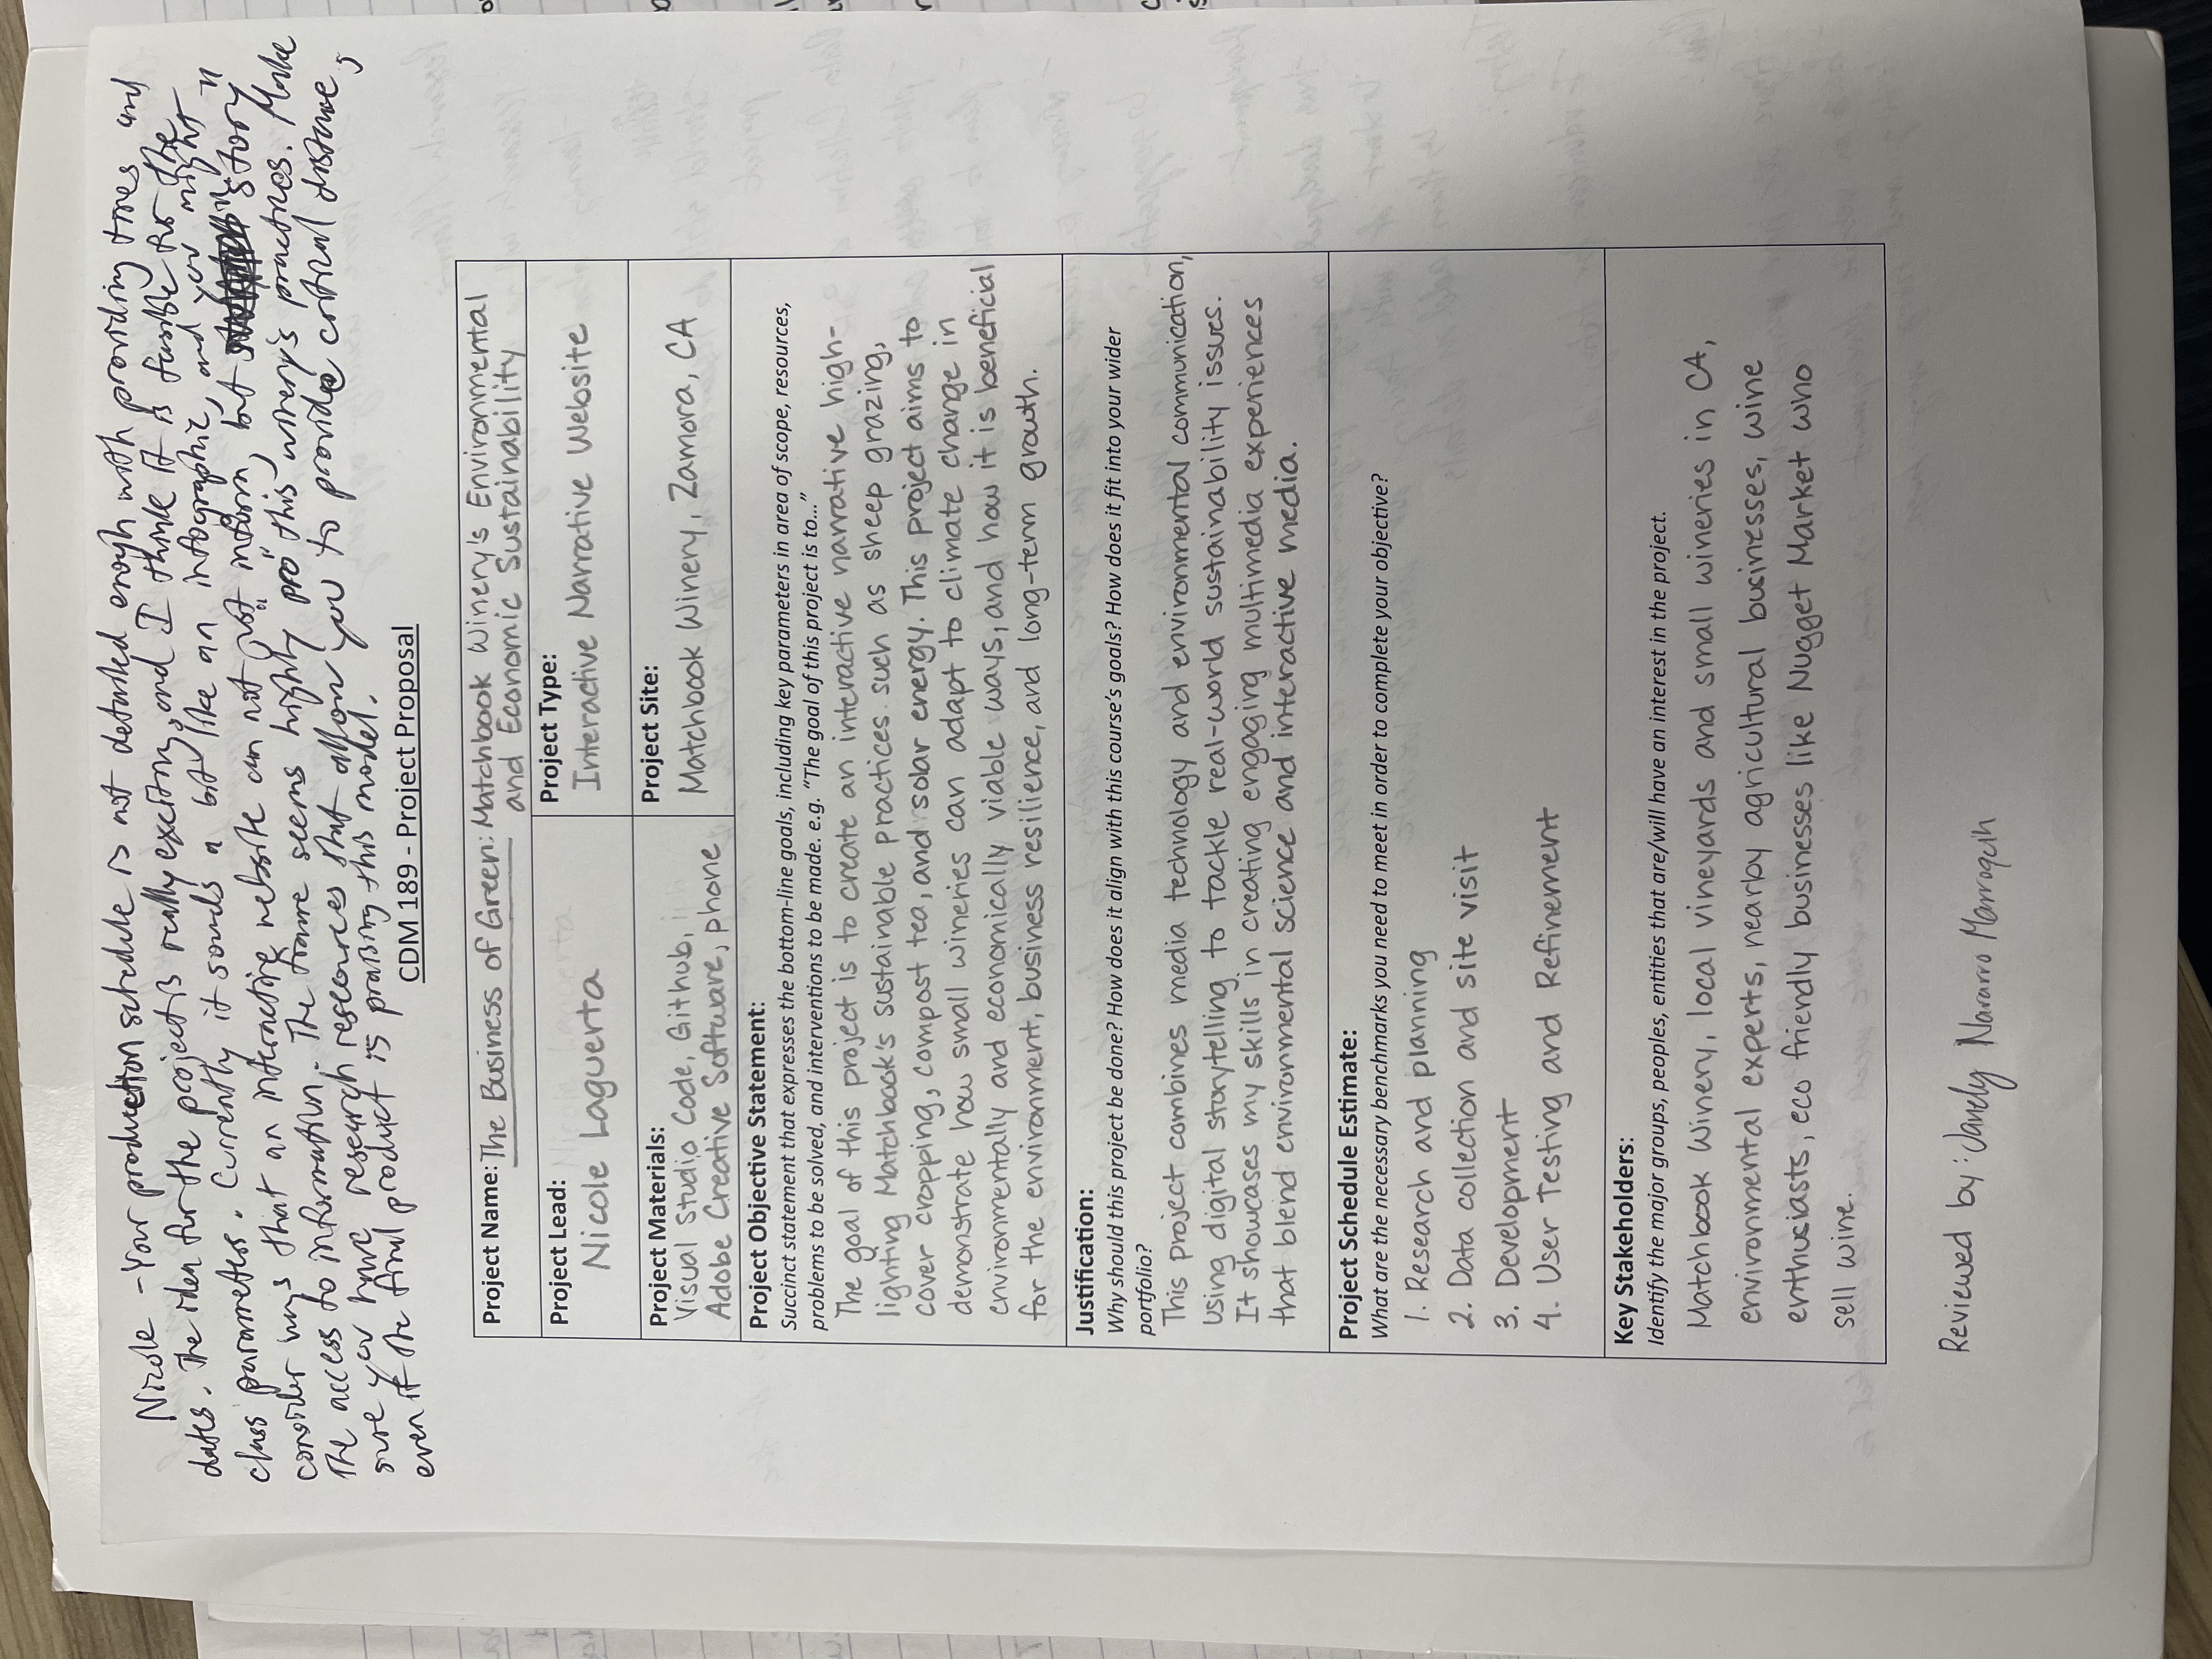 Nicole - Your production schedule is not detailed enough with providing times and
dates. The idea for the project is really exciting, and I think it is feasible for the
class parameters. Currently it sounds a bit like an infographic, and you might
consider ways that an interactive website can not just inform, but "story"
the access to information. The frame seems highly "pro" this winery's practices. Make
sure you have research resources that allow you to provide critical distance,
even if the final product is praising this model.
CDM 189 - Project Proposal
Project Name: The Business of Green: Matchbook Winery's Environmental
and Economic Sustainability
Project Lead: Nicole Laguerta
Nicole Laguerta
Project Type:
Interactive Narrative Website
Project Materials:
Visual Studio Code, Github,
Adobe Creative Software, phone
Project Site:
Matchbook Winery, Zamora, CA
Project Objective Statement:
Succinct statement that expresses the bottom-line goals, including key parameters in area of scope, resources,
problems to be solved, and interventions to be made. e.g. “The goal of this project is to…”
The goal of this project is to create an interactive narrative high-
lighting Matchbook's sustainable practices such as sheep grazing,
cover cropping, compost tea, and solar energy. This project aims to
demonstrate how small wineries can adapt to climate change in
environmentally and economically viable ways, and how it is beneficial
for the environment, business resilience, and long-term growth.
Justification:
Why should this project be done? How does it align with this course’s goals? How does it fit into your wider
portfolio?
This project combines media technology and environmental communication,
using digital storytelling to tackle real-world sustainability issues.
It showcases my skills in creating engaging multimedia experiences
that blend environmental science and interactive media.
Project Schedule Estimate:
What are the necessary benchmarks you need to meet in order to complete your objective?
1. Research and planning
2. Data collection and site visit
3. Development
4. User Testing and Refinement
Key Stakeholders:
Identify the major groups, peoples, entities that are/will have an interest in the project.
Matchbook Winery, local vineyards and small wineries in CA,
environmental experts, nearby agricultural businesses, wine
enthusiasts, eco friendly businesses like Nugget Market who
sell wine.
Reviewed by: Janely Navarro Marroquin